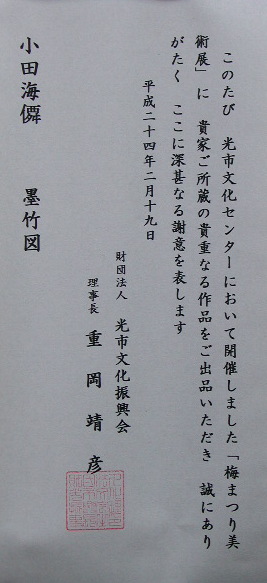 このたび 光市文化センターにおいて開催しました「梅まつり美
術展」に 貴家ご所蔵の貴重なる作品をご出品いただき 誠にあり
がたく ここに深甚なる謝意を表します
平成二十四年二月十九日
財団法人 光市文化振興会
理事長 重岡靖彦
小田海僊 墨竹図